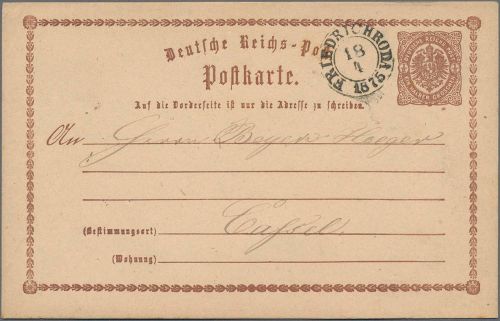 Deutsche Reichs-Post
Postkarte.
FRIEDRICHRODA
18
4
1875
Auf die Vorderseite ist nur die Adresse zu schreiben.
An Herrn
Cassel
(Bestimmungsort)
(Wohnung)